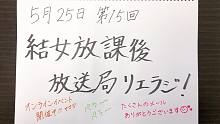 5月25日 第15回
結女放課後
放送局リエラジ!
オンラインイベント
開催オメデトウ
たくさんのメール
ありがとうございます